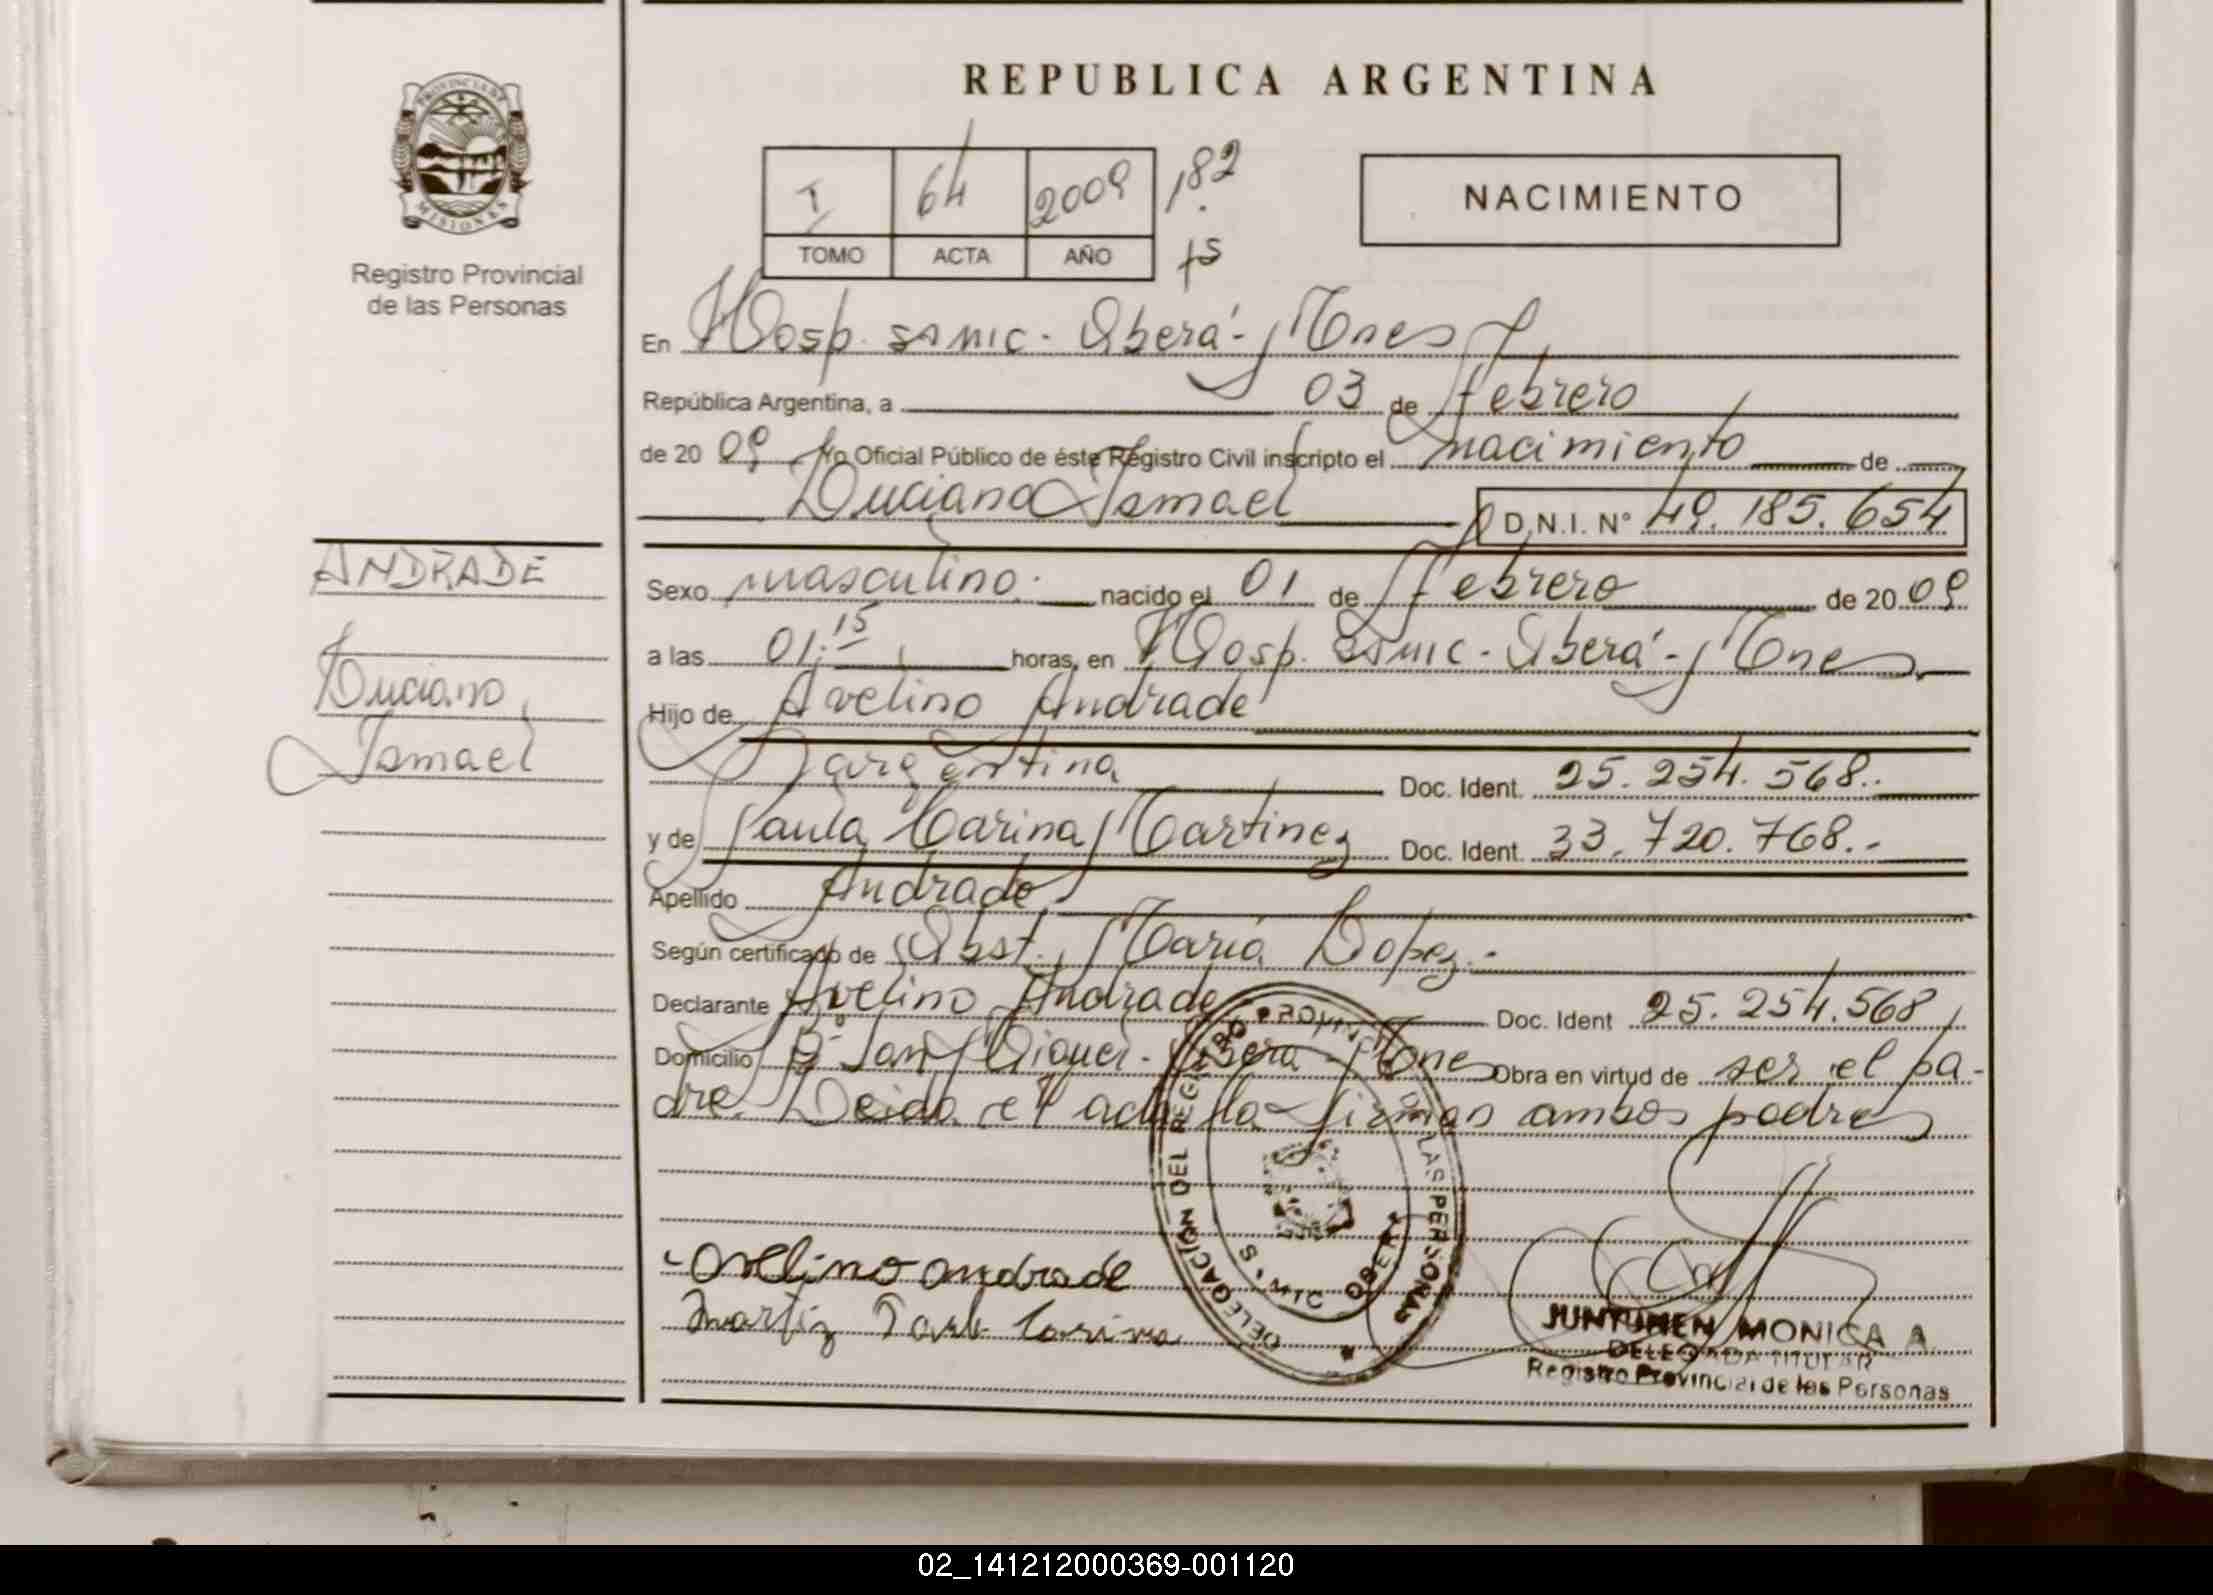 REPUBLICA ARGENTINA
PROVINCIA DE
MISIONES
Registro Provincial
de las Personas
I 64 2009 182
TOMO ACTA AÑO 15
NACIMIENTO
En Hosp. SAMIC - Oberá - Mnes
República Argentina, a 03 de febrero
de 20 09 Yo Oficial Público de éste Registro Civil inscripto el nacimiento de
Luciano Ismael D.N.I. N° 49.185.654
ANDRADE
Luciano
Ismael
Sexo masculino. nacido el 01 de febrero de 20 09
a las 01:15 horas, en Hosp. SAMIC - Oberá - Mnes.
Hijo de Avelino Andrade
argentina Doc. Ident. 25.254.568.-
y de Paula Carina Martinez Doc. Ident. 33.720.768.-
Apellido Andrade
Según certificado de Obst. Maria Lopez.-
Declarante Avelino Andrade Doc. Ident 25.254.568
Domicilio Bº San Miguel - Oberá - Mnes Obra en virtud de ser el pa-
dre. Leida el acta la firman ambos padres
DELEGACIÓN DEL REGISTRO PROVINCIAL DE LAS PERSONAS
S.A.M.I.C. OBERÁ
Avelino andrade
Martinez Paula Carina
JUNTUNEN MONICA A.
DELEGADA TITULAR
Registro Provincial de las Personas
02_141212000369-001120